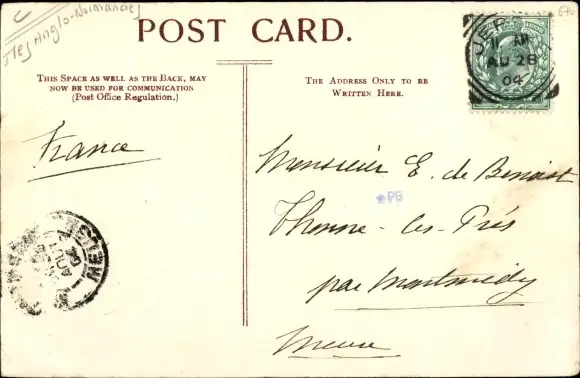 Iles Anglo-Normandes
POST CARD.
THIS SPACE AS WELL AS THE BACK, MAY
NOW BE USED FOR COMMUNICATION
(Post Office Regulation.)
THE ADDRESS ONLY TO BE
WRITTEN HERE.
JERSEY
11 AM
AU 28
04
France
Monsieur E. de Benoist
Thonne-les-Prés
par Montmédy
Meuse